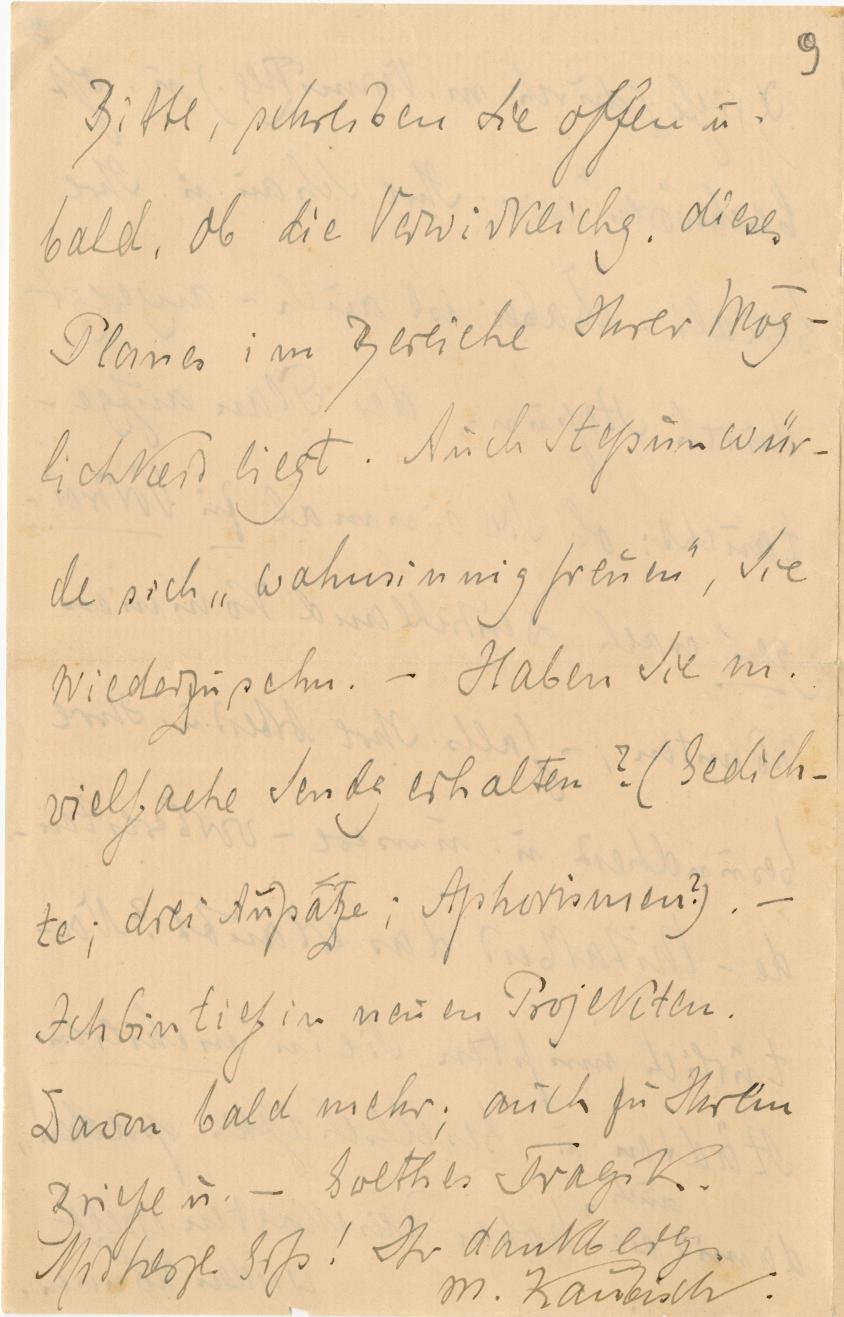 9
Bitte, schreiben Sie offen u.
bald, ob die Verwirklichg. dieses
Planes im Bereiche Ihrer Mög-
lichkeit liegt. Auch Stepun wür-
de sich „wahnsinnig freuen“, Sie
wiederzusehn. – Haben Sie m.
vielfache Sendg erhalten? (Gedich-
te; drei Aufsätze; Aphorismen?). –
Ich bin tief in neuen Projekten.
Davon bald mehr; auch zu Ihrem
Briefe u. – Goethes Tragik.
Mit herzl. Grß! Ihr dankberg.
M. Kaubisch.